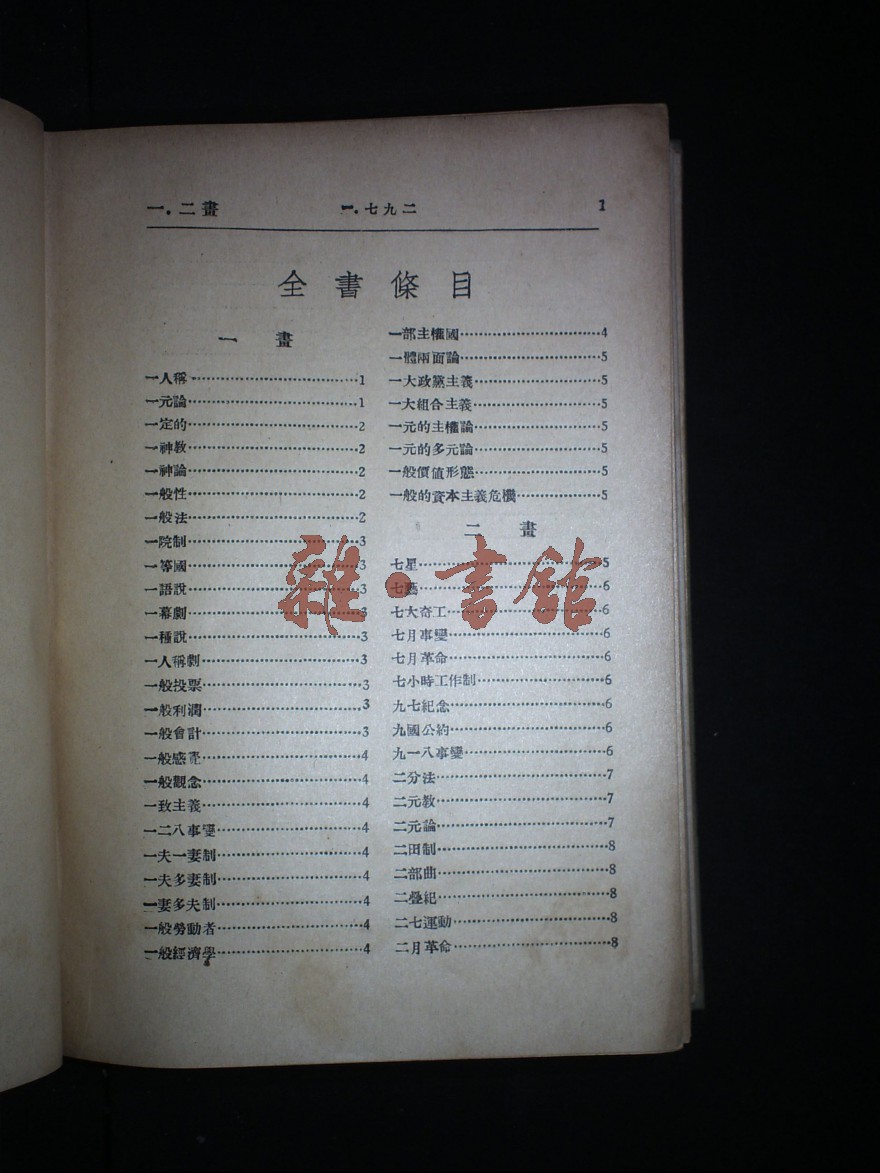 一．二畫 一．七九二 1
全書條目
一畫
一人稱…………1
一元論…………1
一定的…………2
一神教…………2
一神論…………2
一般性…………2
一般法…………2
一院制…………3
一等國…………3
一語說…………3
一幕劇…………3
一種說…………3
一人稱劇…………3
一般投票…………3
一般利潤…………3
一般會計…………3
一般感音…………4
一般觀念…………4
一致主義…………4
一二八事變…………4
一夫一妻制…………4
一夫多妻制…………4
一妻多夫制…………4
一般勞動者…………4
一般經濟學…………4
一部主權國…………4
一體兩面論…………5
一大政黨主義…………5
一大組合主義…………5
一元的主權論…………5
一元的多元論…………5
一般價值形態…………5
一般的資本主義危機…………5
二畫
七星…………5
七藝…………6
七大奇工…………6
七月事變…………6
七月革命…………6
七小時工作制…………6
九七紀念…………6
九國公約…………6
九一八事變…………6
二分法…………7
二元教…………7
二元論…………7
二田制…………8
二部曲…………8
二疊紀…………8
二七運動…………8
二月革命…………8
雜·書館